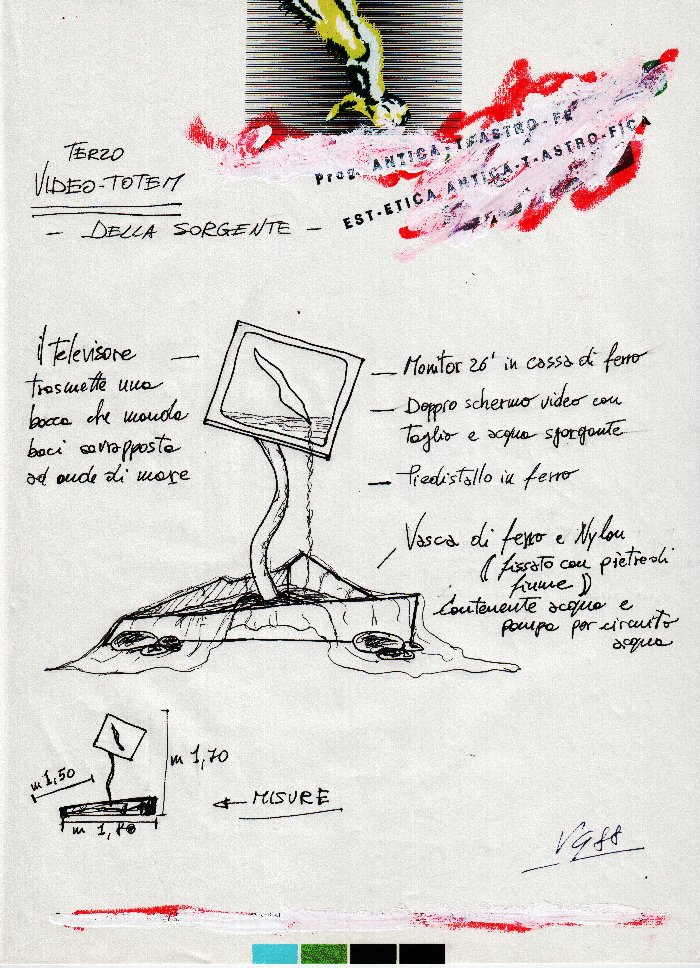 Prog. ANTICA-T-ASTRO-FE
EST-ETICA ANTICA-T-ASTRO-FICA
TERZO
VIDEO-TOTEM
- DELLA SORGENTE -
il televisore
trasmette una
bocca che manda
baci sovrapposta
ad onde di mare
Monitor 26' in cassa di ferro
Doppio schermo video con
taglio e acqua sgorgante
Piedistallo in ferro
Vasca di ferro e Nylon
(fissato con pietre di
fiume)
Contenente acqua e
pompa per circuito
acqua
m 1,70
m 1,50
m 1,80
MISURE
VG88